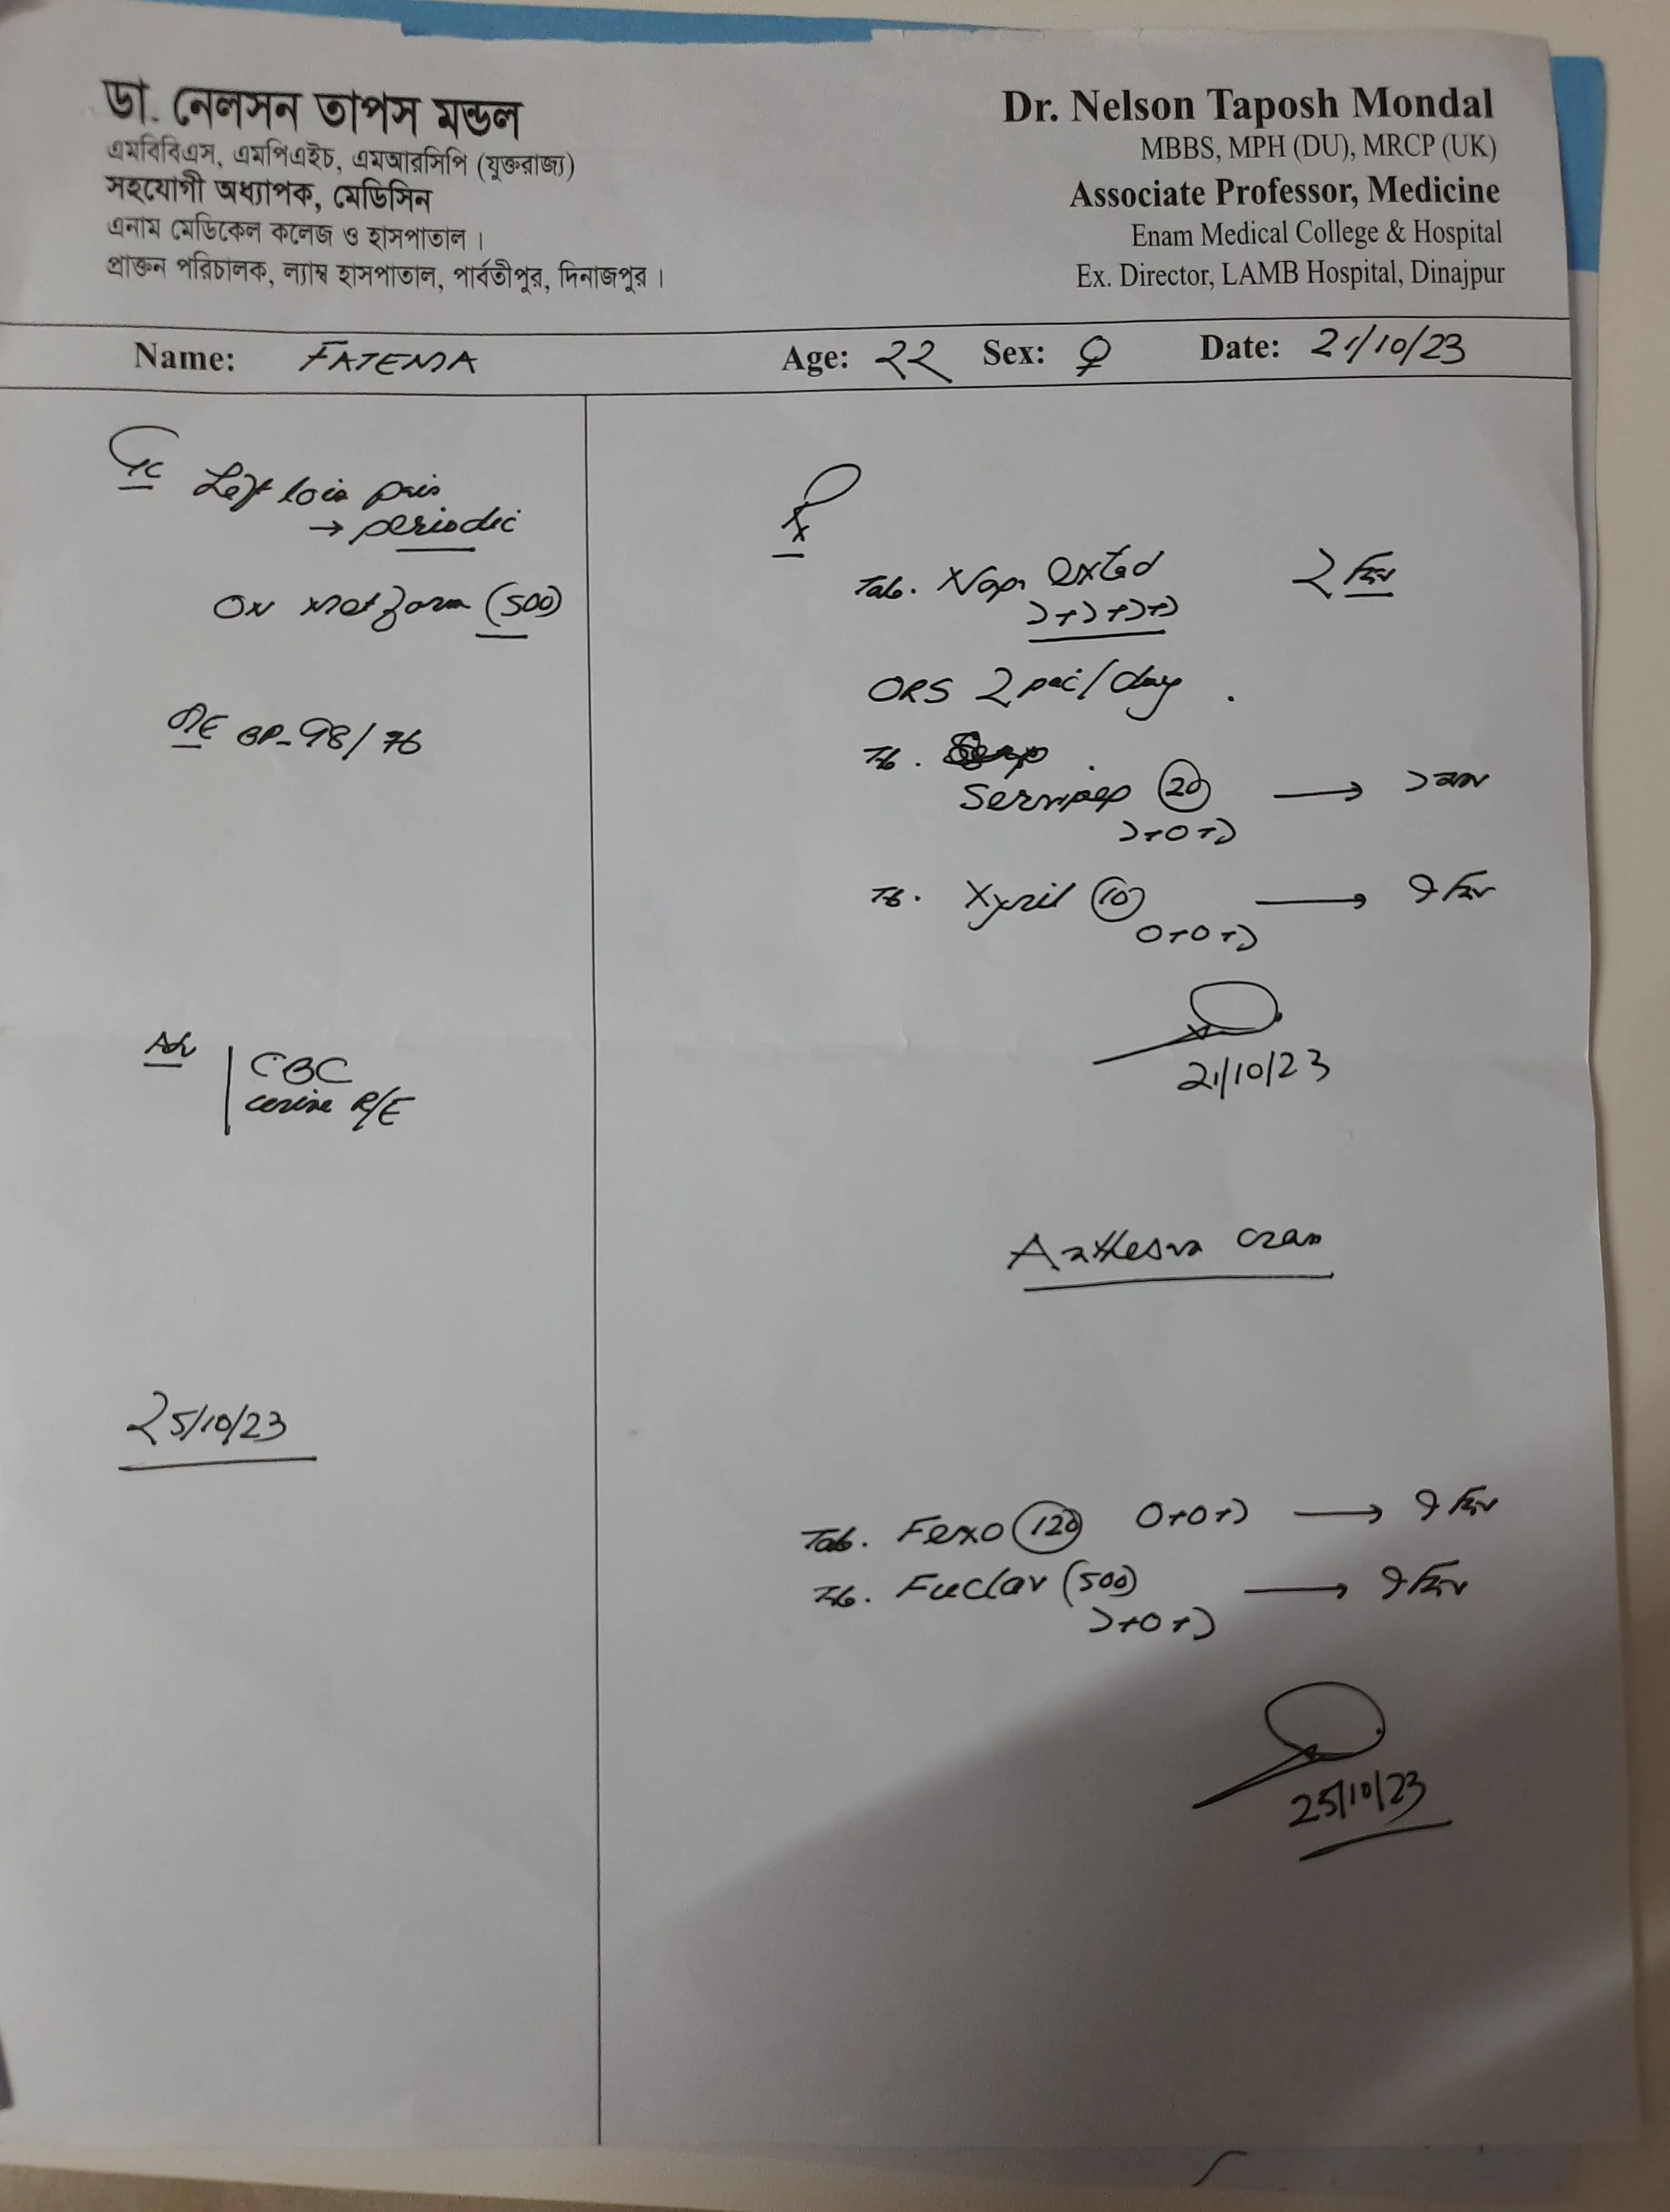 ডা. নেলসন তাপস মন্ডল
এমবিবিএস, এমপিএইচ, এমআরসিপি (যুক্তরাজ্য)
সহযোগী অধ্যাপক, মেডিসিন
এনাম মেডিকেল কলেজ ও হাসপাতাল।
প্রাক্তন পরিচালক, ল্যাম্ব হাসপাতাল, পার্বতীপুর, দিনাজপুর।
Dr. Nelson Taposh Mondal
MBBS, MPH (DU), MRCP (UK)
Associate Professor, Medicine
Enam Medical College & Hospital
Ex. Director, LAMB Hospital, Dinajpur
Name: FATEMA Age: 22 Sex: ♀ Date: 21/10/23
Left loin pain
→ periodic
ON metform (500)
O/E BP- 98/76
Adv
CBC
urine R/E
25/10/23
Rx
Tab. Napa Extend ২ দিন
১+১+১+১
ORS 2 pac/day
Tb.
(20) → ১ মাস
১+০+১
Tb. Xyril (10) → ৭ দিন
০+০+১
21/10/23
Tab. Fexo (120) ০+০+১ → ৭ দিন
Tb. Fuclav (500) → ৭ দিন
১+০+১
25/10/23